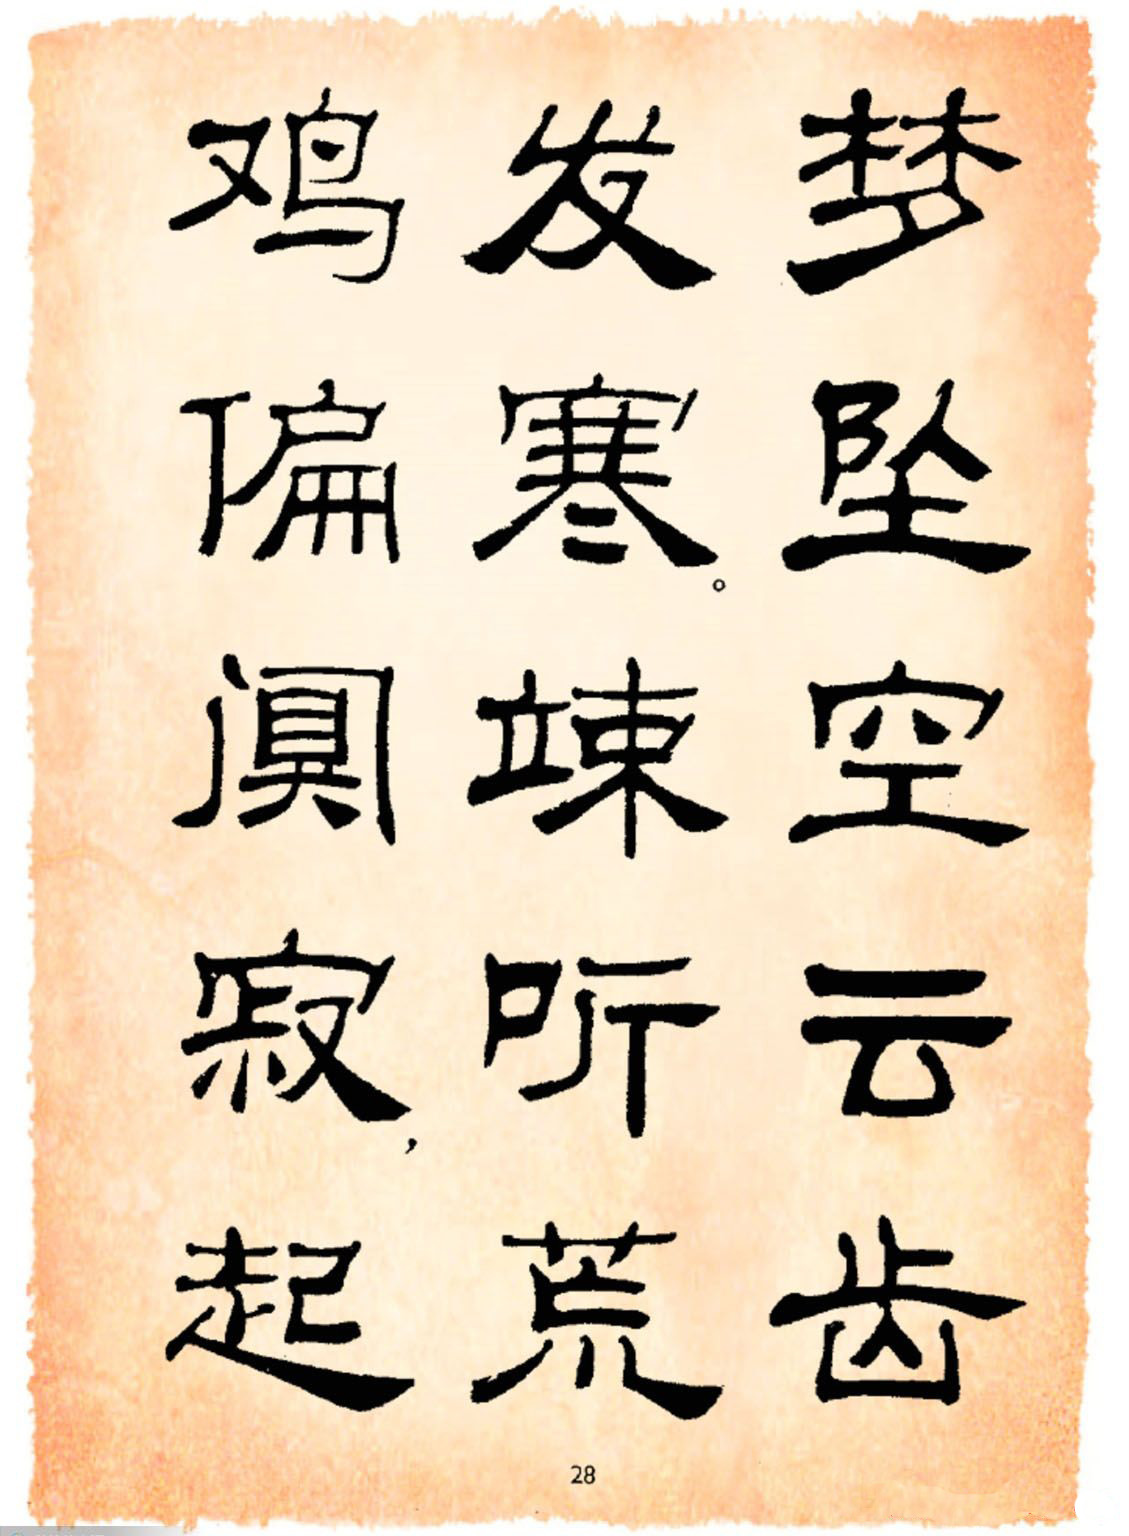 梦坠空云齿
发寒。竦听荒
鸡偏阒寂,起
28